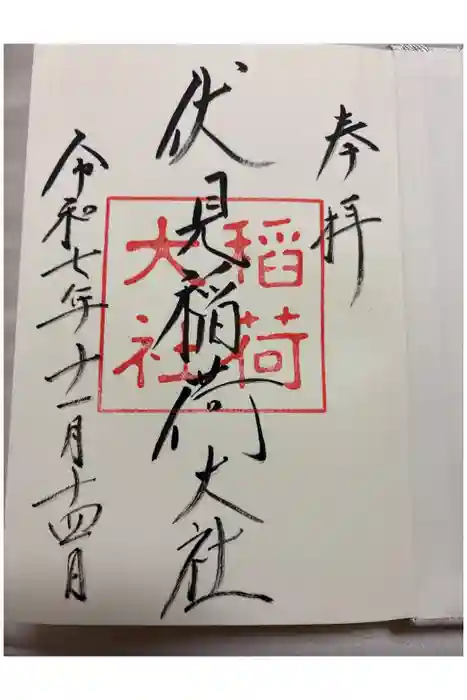 奉拝
伏見稲荷大社
稲荷
大社
令和七年十一月十四日